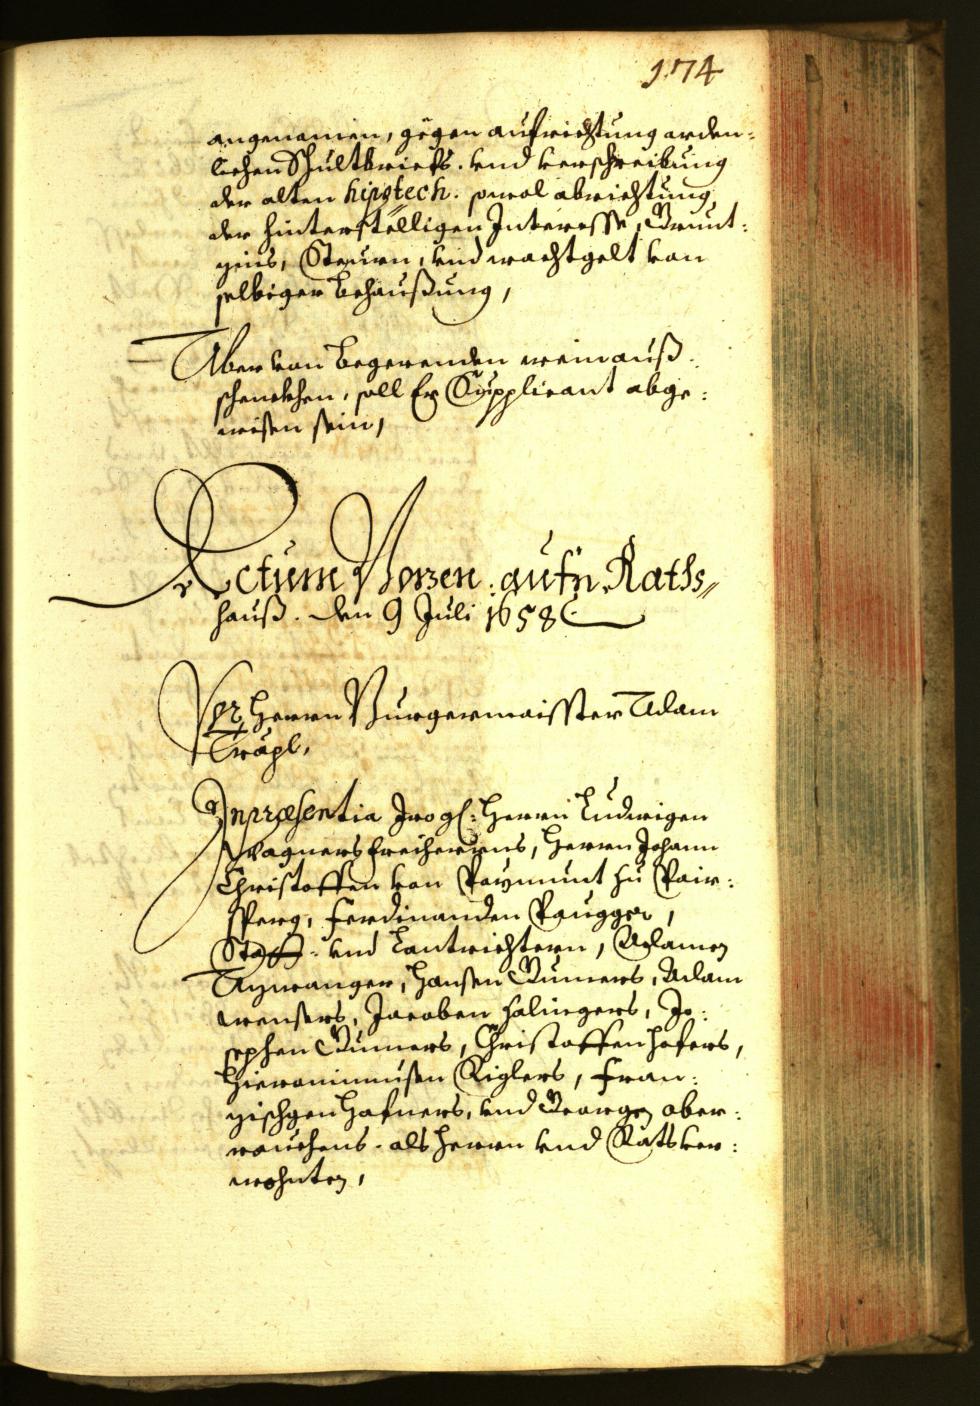 174
angenomen, gegen aufrichtung orden-
lichen Schultbriefs. vnd verschreibung
der alten hipotech. sowol abrichtung
der hinterstelligen Interesse, Grunt-
zins, Steurn, vnd wachtgelt von
selbiger Behaußung,
Aber von begerenden weinauß
schenckhen, soll Er Supplicant abge-
wisen sein,
Actum Bozen. aufn Raths-
hauß. den 9 Juli 1658
Vor Herrn Burgermaisster Adam
Inpræsentia Herrn Ludwigen
Wagners freiherrns, Herrn Johann
Christoffen von Paymunt zu Pair-
sperg, Ferdinanden Paugger,
Statt- und Lantrichtern, Adamen
Hansen Gumers, Adam
Jacoben Jo-
sephen Gumers, Christoffen Hofers,
Hieronimusen Riglers, Fran-
zischgen Hafners, vnd Georgen ober-
rauchens. als Herrn vnd Ratsver-
wohnten,